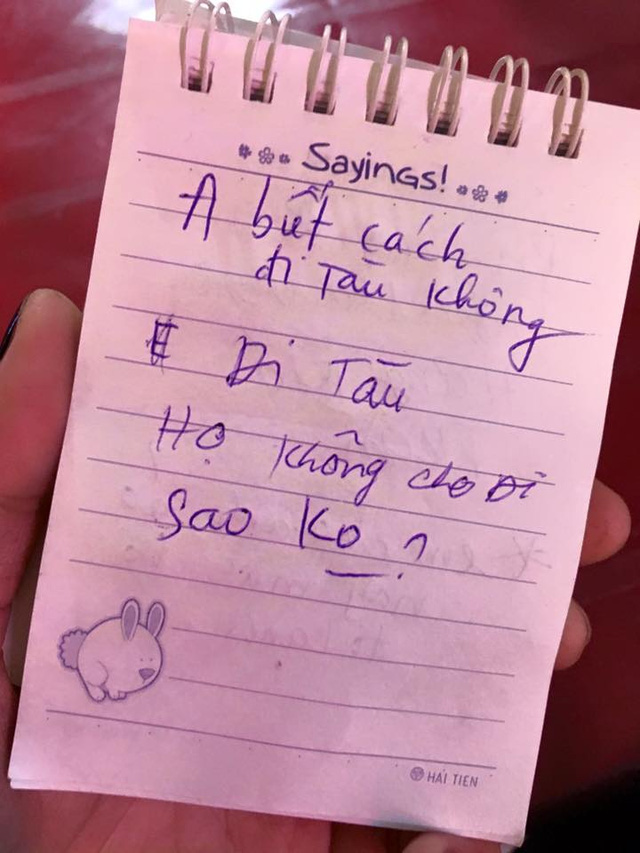 Sayings!
A biết cách
đi Tàu không
E Đi Tàu
Họ không cho Đi
Sao Ko ?
HẢI TIẾN